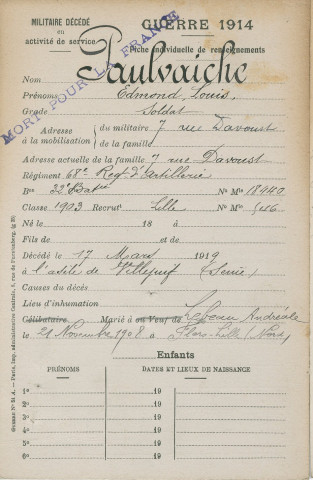 MILITAIRE DÉCÉDÉ
en
activité de service
GUERRE 1914
Fiche individuelle de renseignements
MORT POUR LA FRANCE
Nom Paulvaiche
Prénoms Edmond, Louis,
Grade Soldat
Adresse à la mobilisation { du militaire 7 rue Davoust
de la famille
Adresse actuelle de la famille 7 rue Davoust
Régiment 68e Regt d'Artillerie
Bon 22e Batrie No Mle 18940
Classe 1903 Recrutt Lille No Mle 546
Né le 18 à
Fils de et de
Décédé le 17 Mars 1919
à l'asile de Villejuif (Seine)
Causes du décès
Lieu d'inhumation
Célibataire Marié à ou Veuf de Lebeau Andréale
le 21 Novembre 1908 à Flers-Lille (Nord)
Enfants
PRÉNOMS DATES ET LIEUX DE NAISSANCE
1o 19
2o 19
3o 19
4o 19
5o 19
6o 19
— Paris, Imp. administrative Centrale, 8, rue de Furstenberg. (g 29)